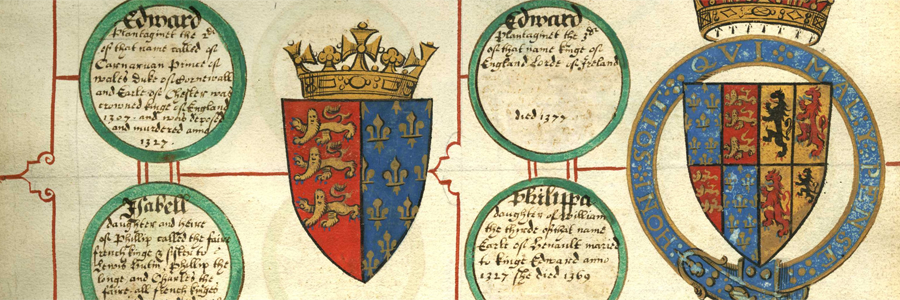 Edward
Plantaginet the 2d
of that name called of
Carnaruan Prince of
wales Duke of Cornewall
and Earle of Chester was
crowned kinge of England
1307. and was deposed
and murdered anno
1327.
Isabell
daughter and heire
of Phillip called the faire
french kinge & sister to
Lewis Hutin, Phillip the
longe and Charles the
faire all french kinges
Edward
Plantaginet the 3d
of that name kinge of
England Lorde of Ireland
died 1377
Philippa
daughter of William
the thirde of that name
Earle of Henault maried
to kinge Edward anno
1327 she died 1369
HONI SOIT QVI M